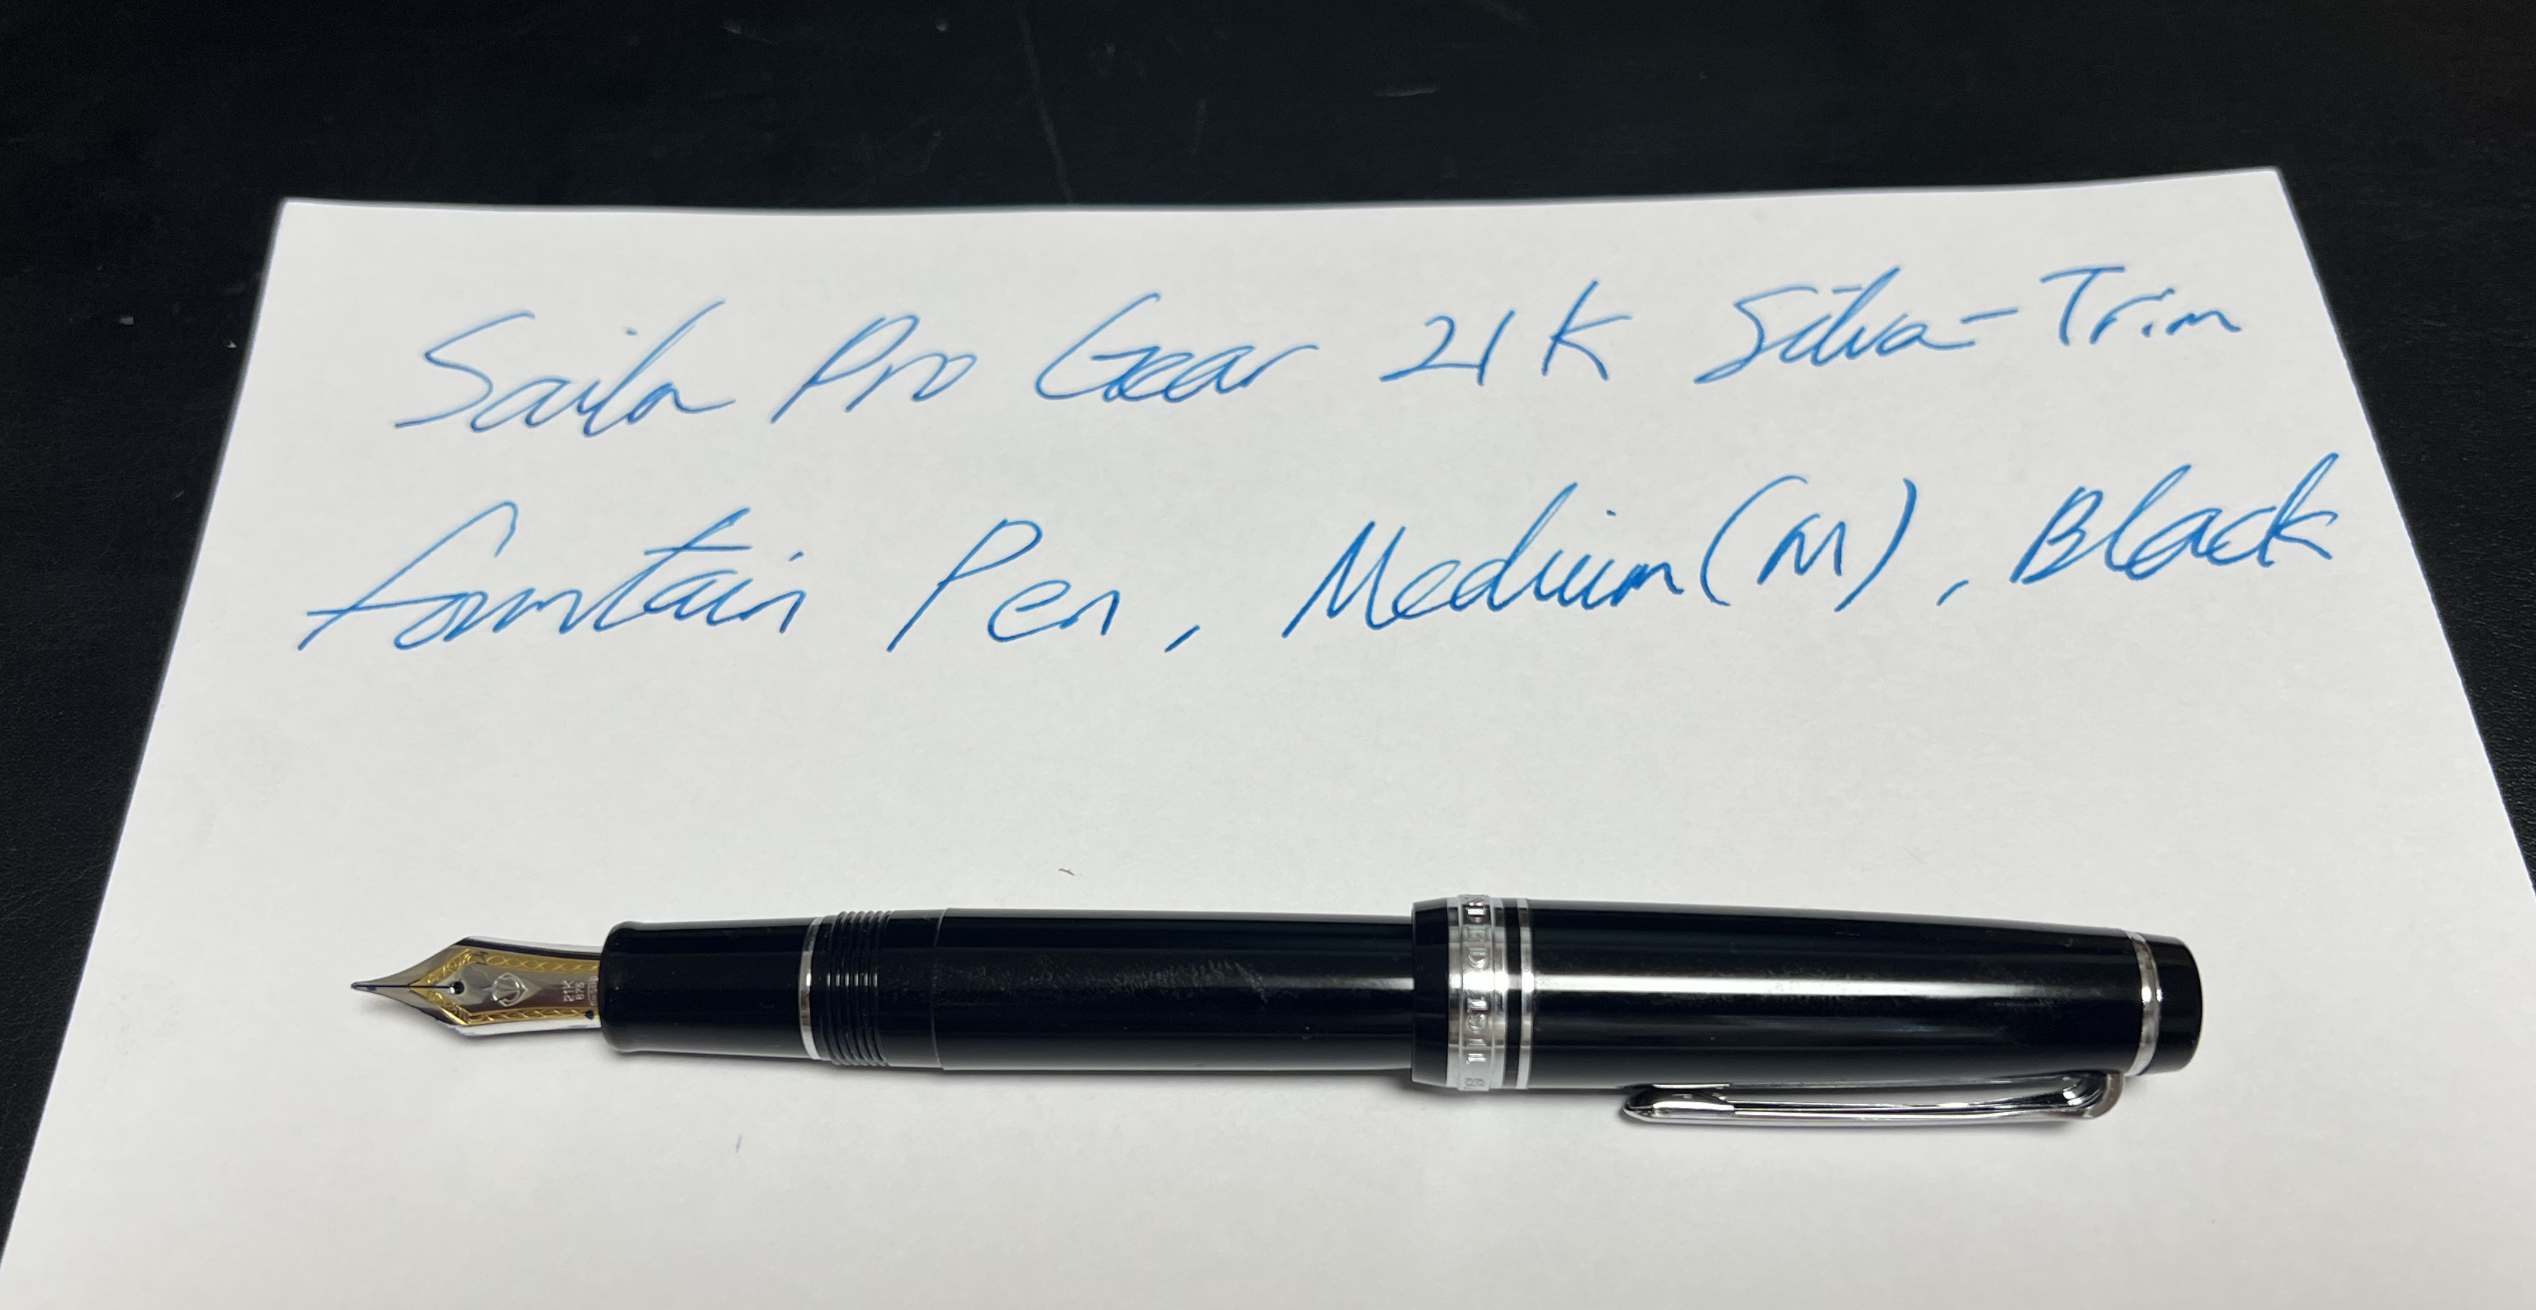 Sailor Pro Gear 21K Silver-Trim
Fountain Pen, Medium (M), Black
21K
875